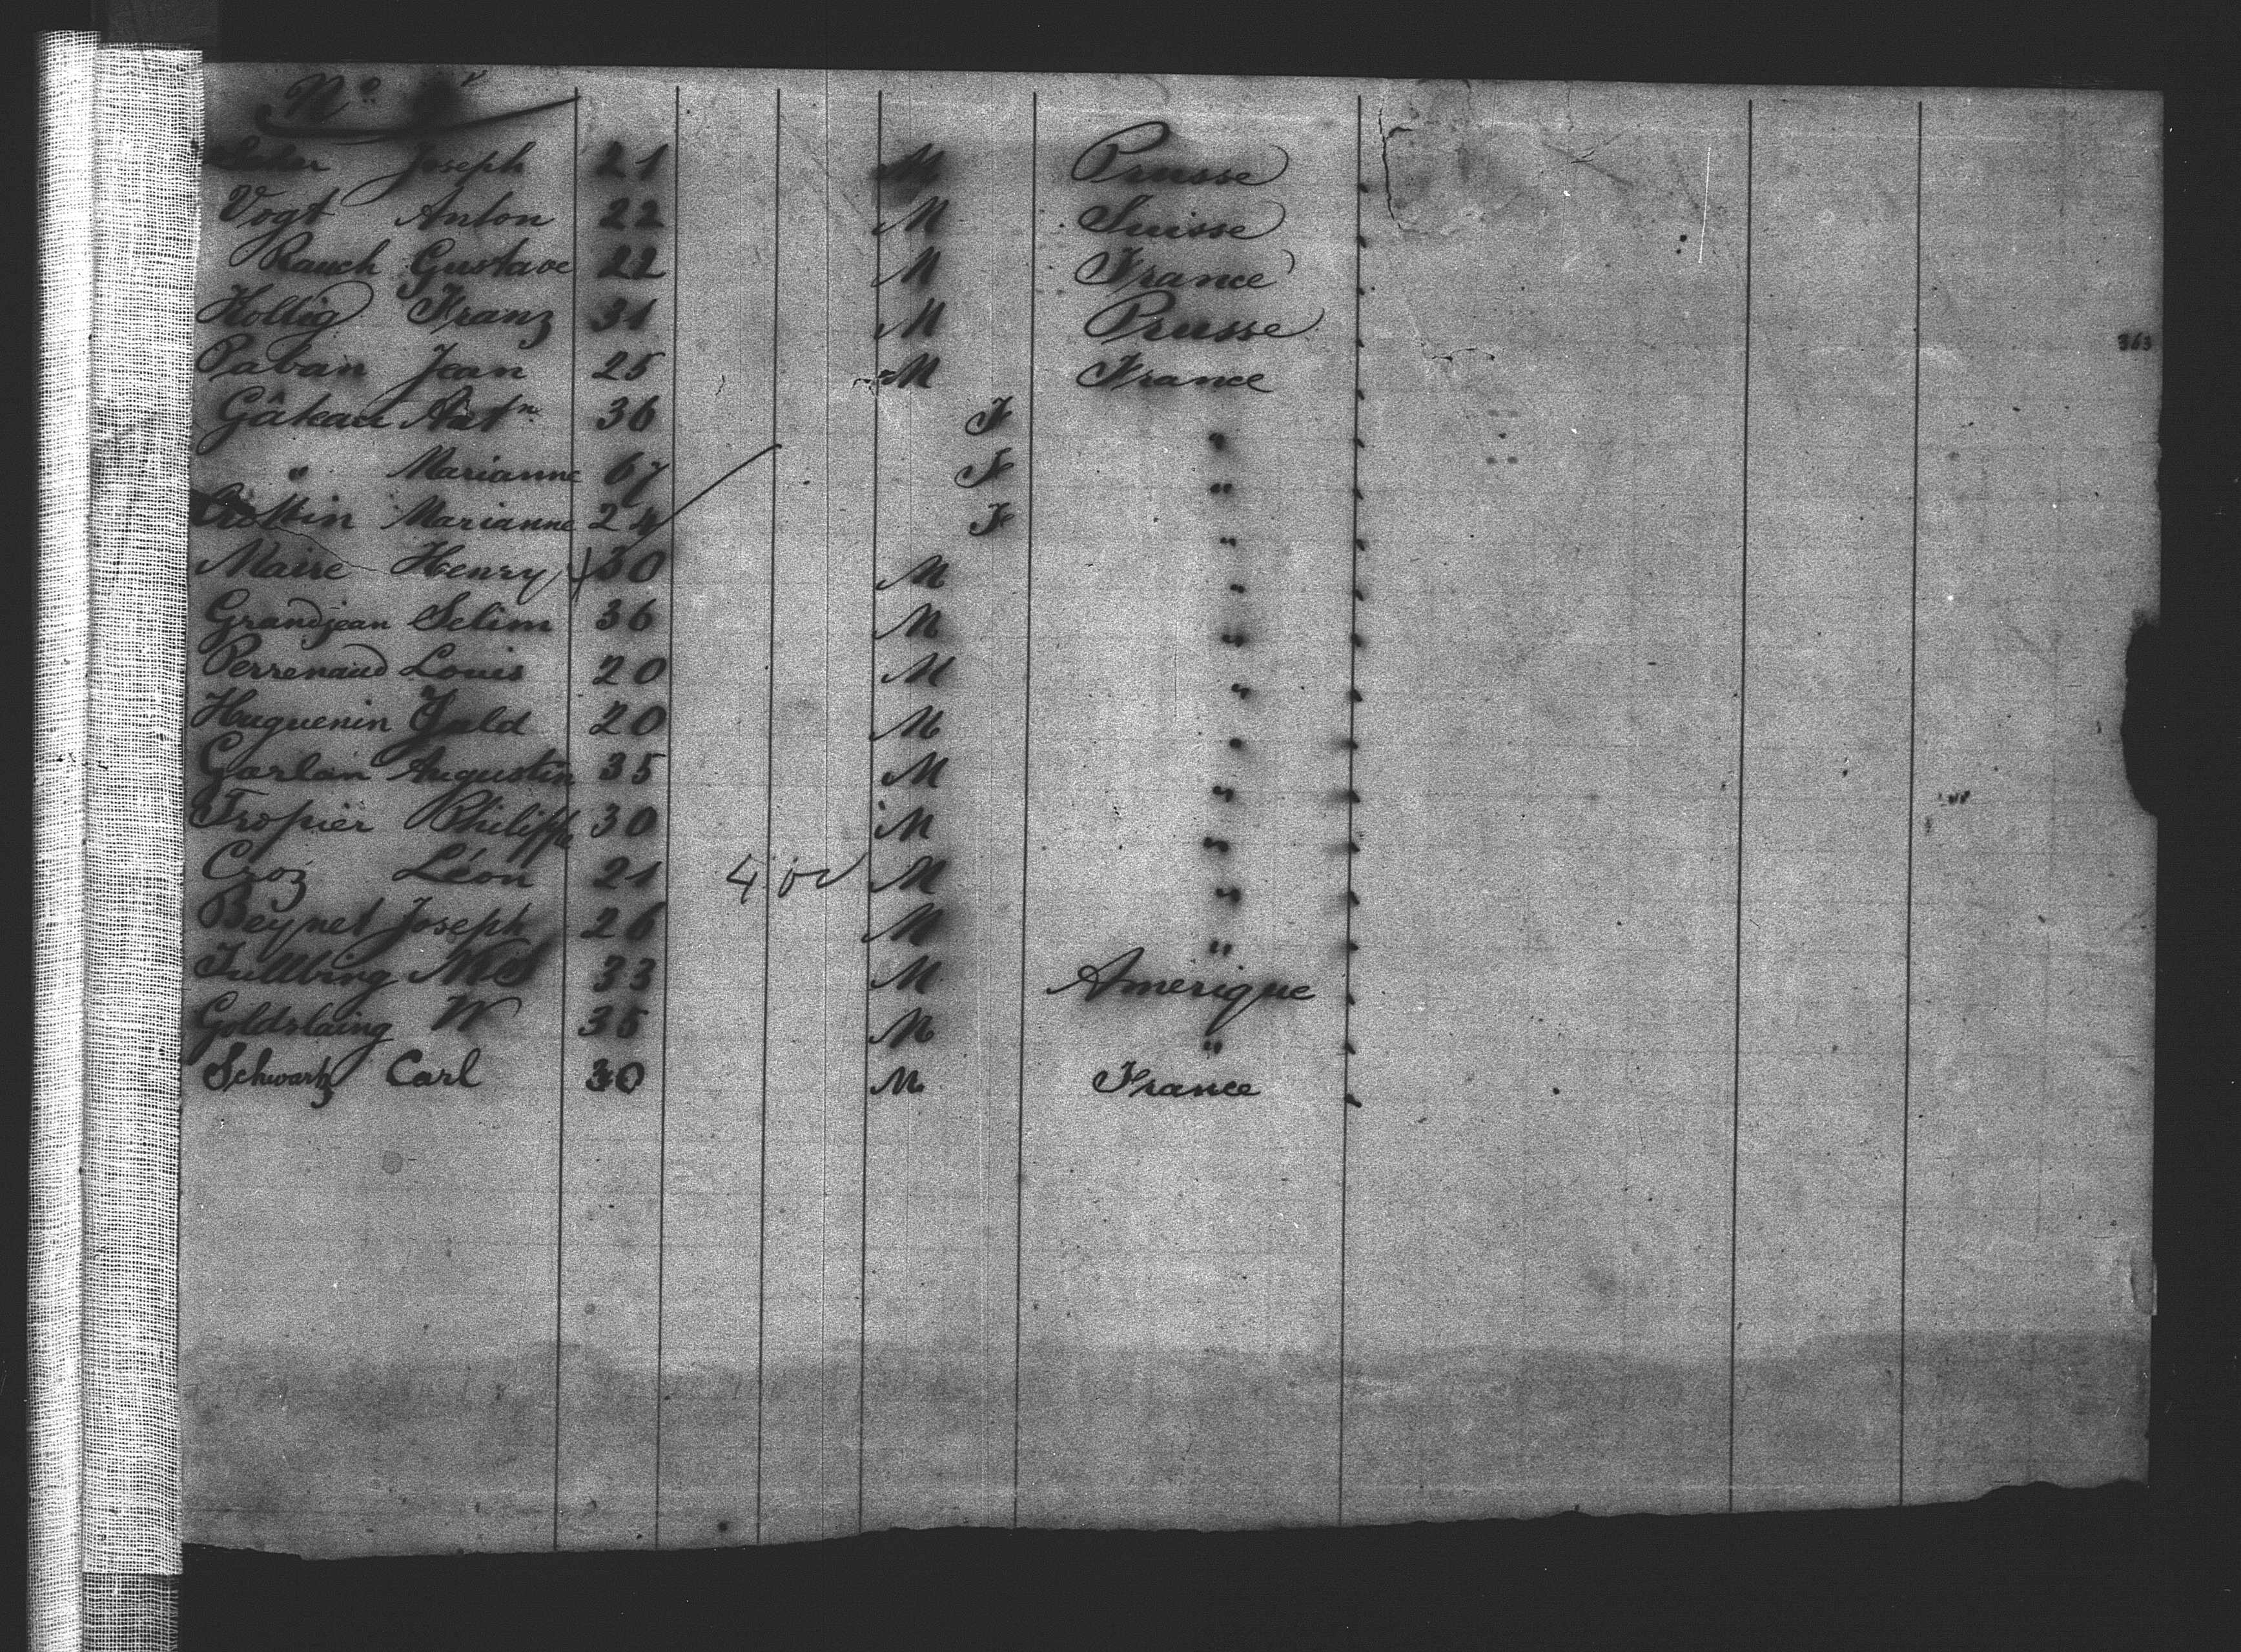 Nº
Joseph 21 M Prusse
Vogt Anton 22 M Suisse
Rauch Gustave 22 M France
Hollig Franz 31 M Prusse
Pavan Jean 25 M France
Gâteau 36 F "
" Marianne 67 F "
Marianne 24 F "
Maire Henry 30 M "
Grandjean Selim 36 M "
Perrenaud Louis 20 M "
Huguenin Juld 20 M "
Garlan Augustin 35 M "
Tropier Philippe 30 M "
Croz Léon 21 M "
Beynet Joseph 26 M "
33 M Amerique
Goldslaing W 35 M "
Schwartz Carl 30 M France
363